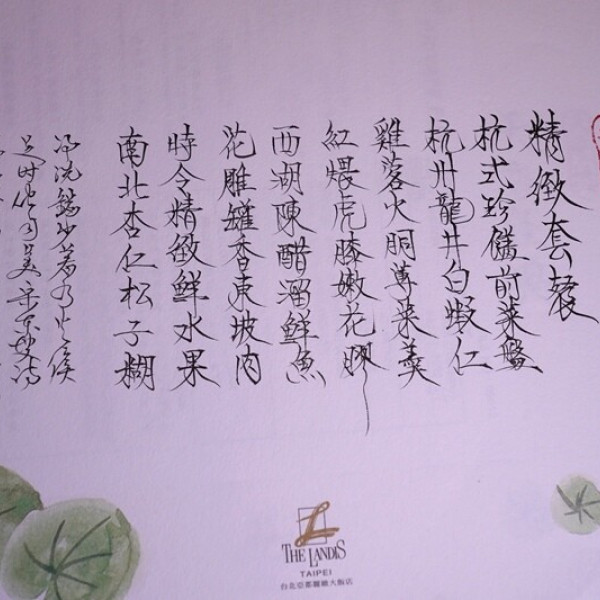 精緻套餐
杭式珍饈前菜盤
杭州龍井白蝦仁
雞茖火胴蓴菜羹
紅煨虎膝嫩花膠
西湖陳醋溜鮮魚
花雕罐香東坡肉
時令精緻鮮水果
南北杏仁松子糊
淨洗鐺少著水火候
足時他自美 宋 東坡詩
THE LANDIS
TAIPEI
台北亞都麗緻大飯店